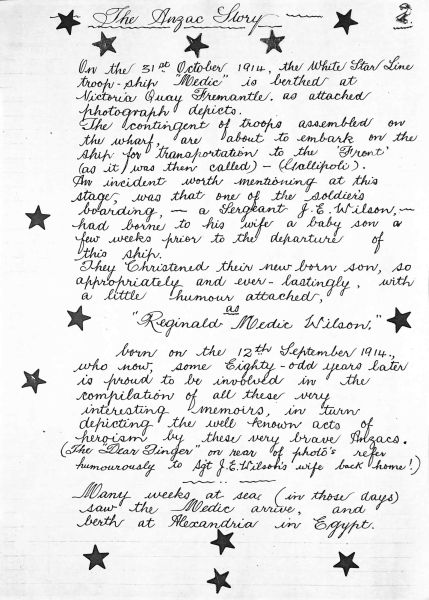 The Anzac Story
2.
On the 31st October 1914, the White Star Line
troop-ship "Medic" is berthed at
Victoria Quay Fremantle. as attached
photograph depicts.
The contingent of troops assembled on
the wharf, are about to embark on the
ship for transportation to the 'Front'
(as it was then called) - (Gallipoli).
An incident worth mentioning at this
stage, was that one of the soldier's
boarding, — a Sergeant J. E. Wilson, —
had borne to his wife a baby son a
few weeks prior to the departure of
this ship.
They Christened their new born son, so
appropriately and ever-lastingly, with
a little humour attached,
as
"Reginald Medic Wilson."
born on the 12th September 1914.,
who now, some Eighty-odd years later
is proud to be involved in the
compilation of all these very
interesting memoirs, in turn
depicting the well known acts of
heroism by these very brave Anzacs.
(The "Dear Finger" on rear of photo's refer
humourously to Sgt J. E. Wilson's wife back home!)
Many weeks at sea (in those days)
saw the Medic arrive, and
berth at Alexandria in Egypt.